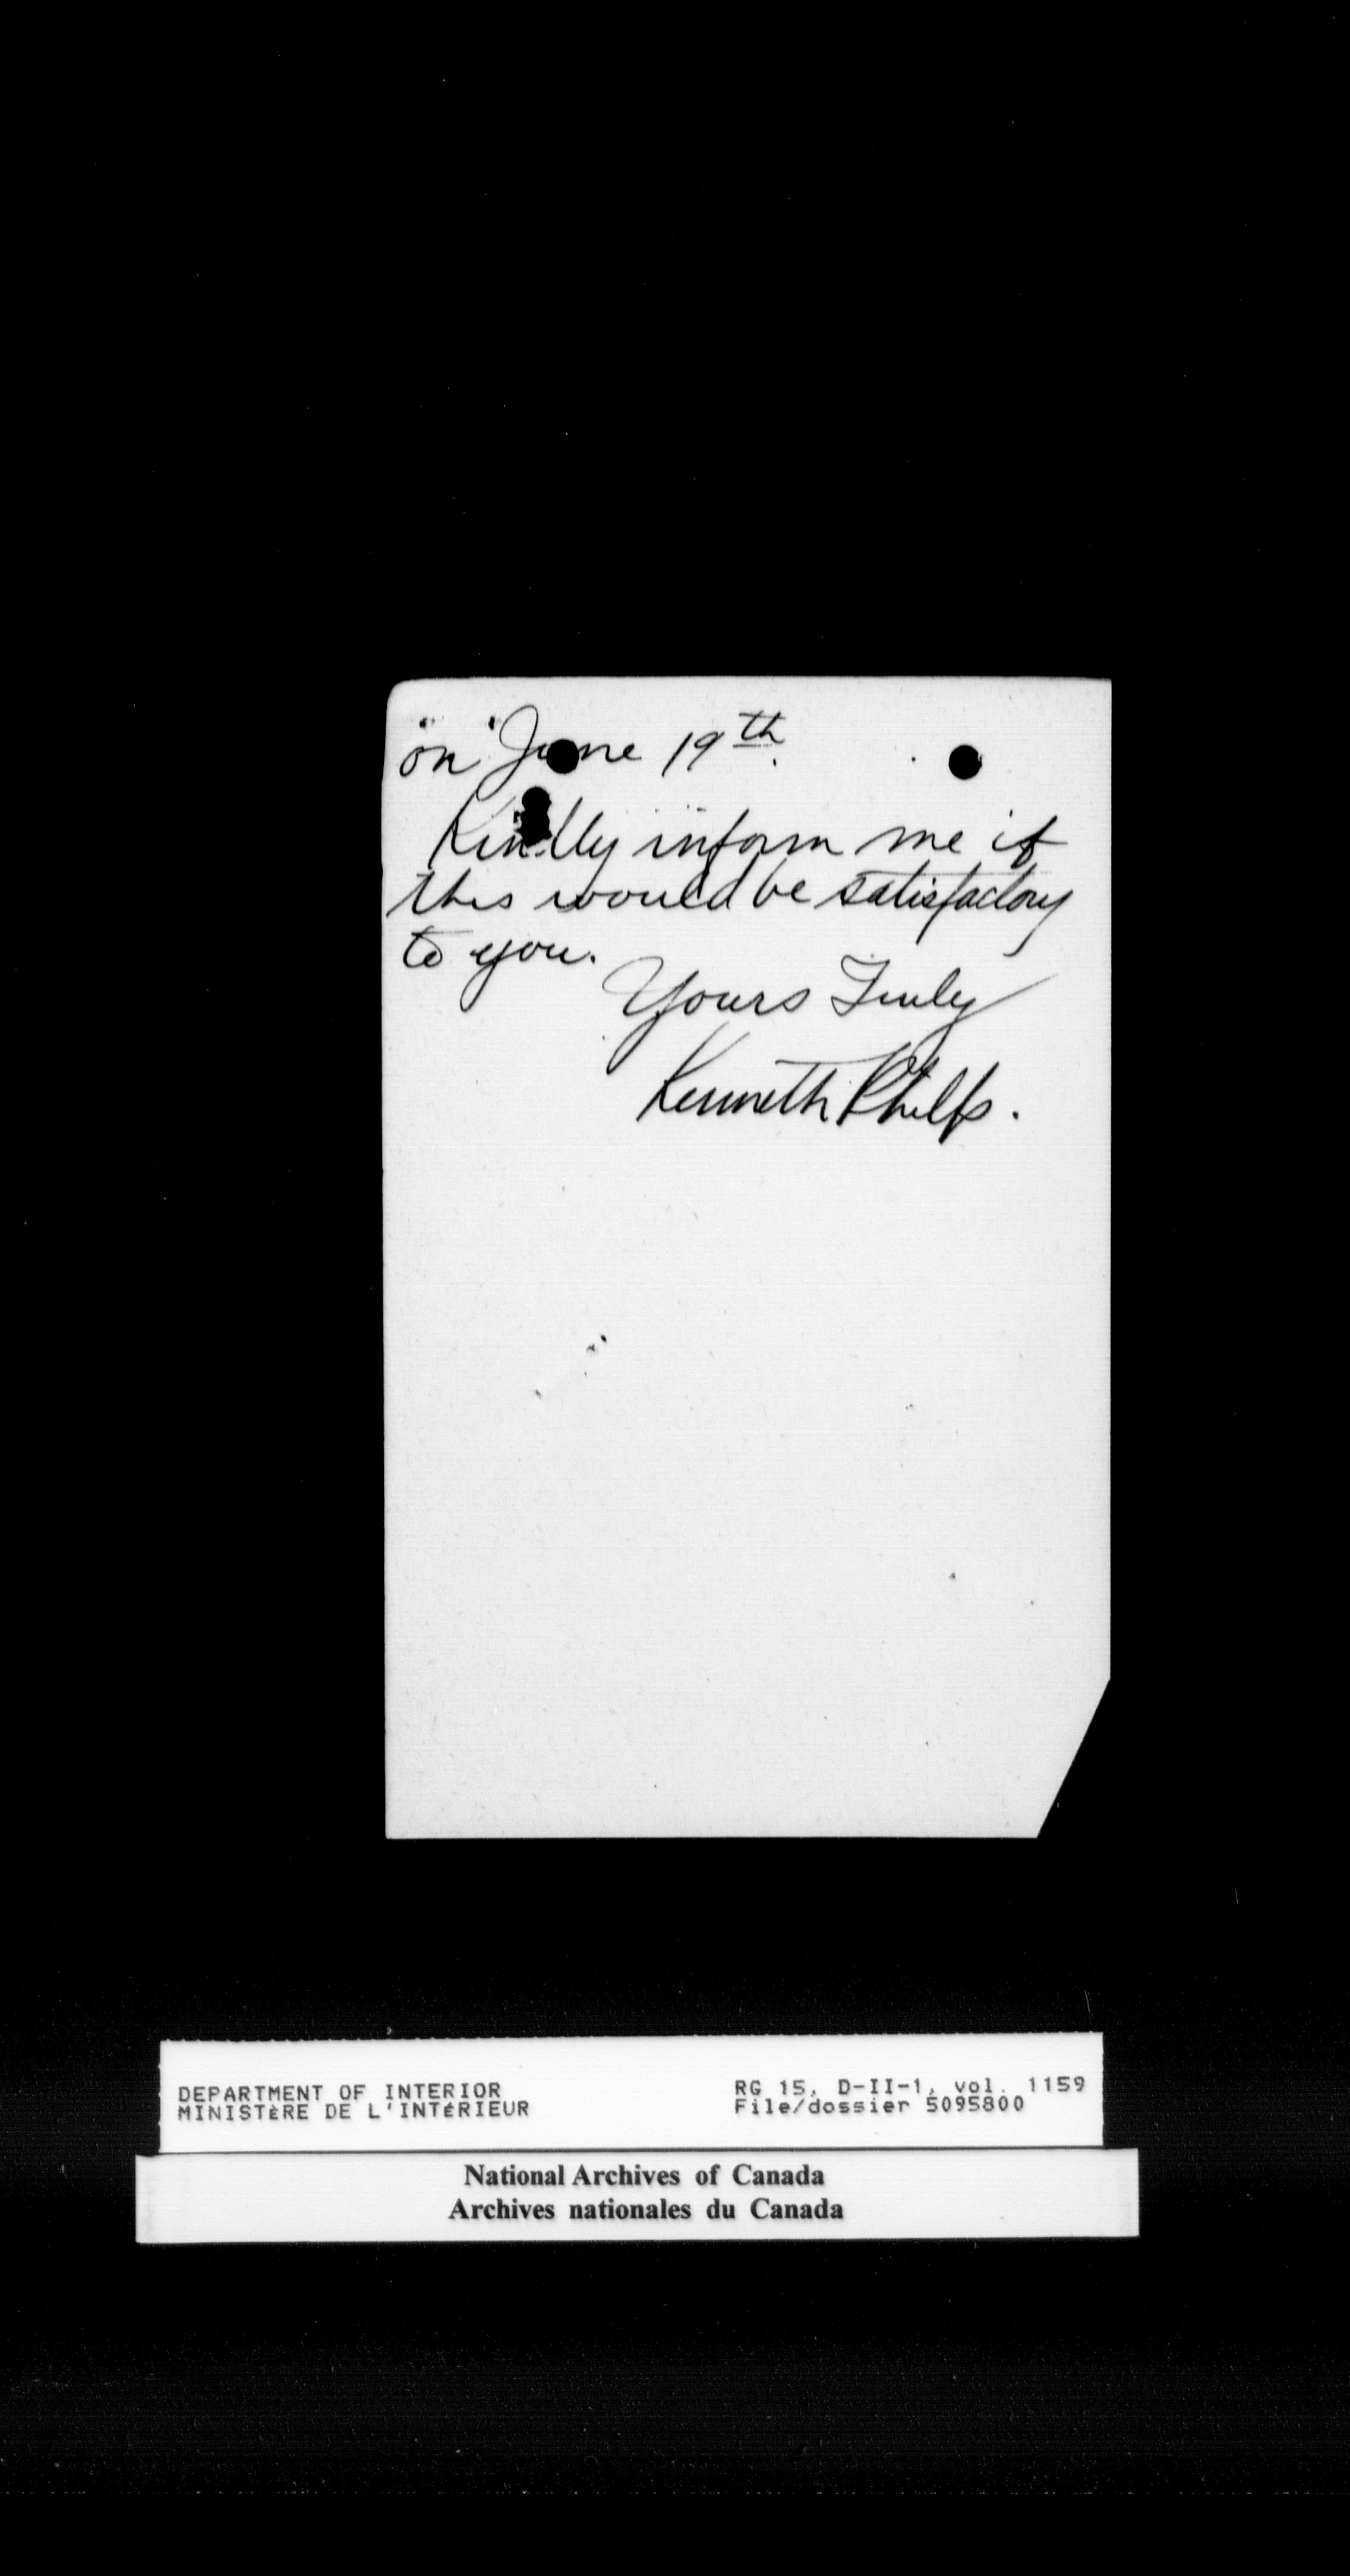 on June 19th.
Kindly inform me if
this would be satisfactory
to you.
Yours Truly
Kenneth Phelps.
DEPARTMENT OF INTERIOR
MINISTèRE DE L'INTéRIEUR
RG 15, D-II-1, vol. 1159
File/dossier 5095800
National Archives of Canada
Archives nationales du Canada